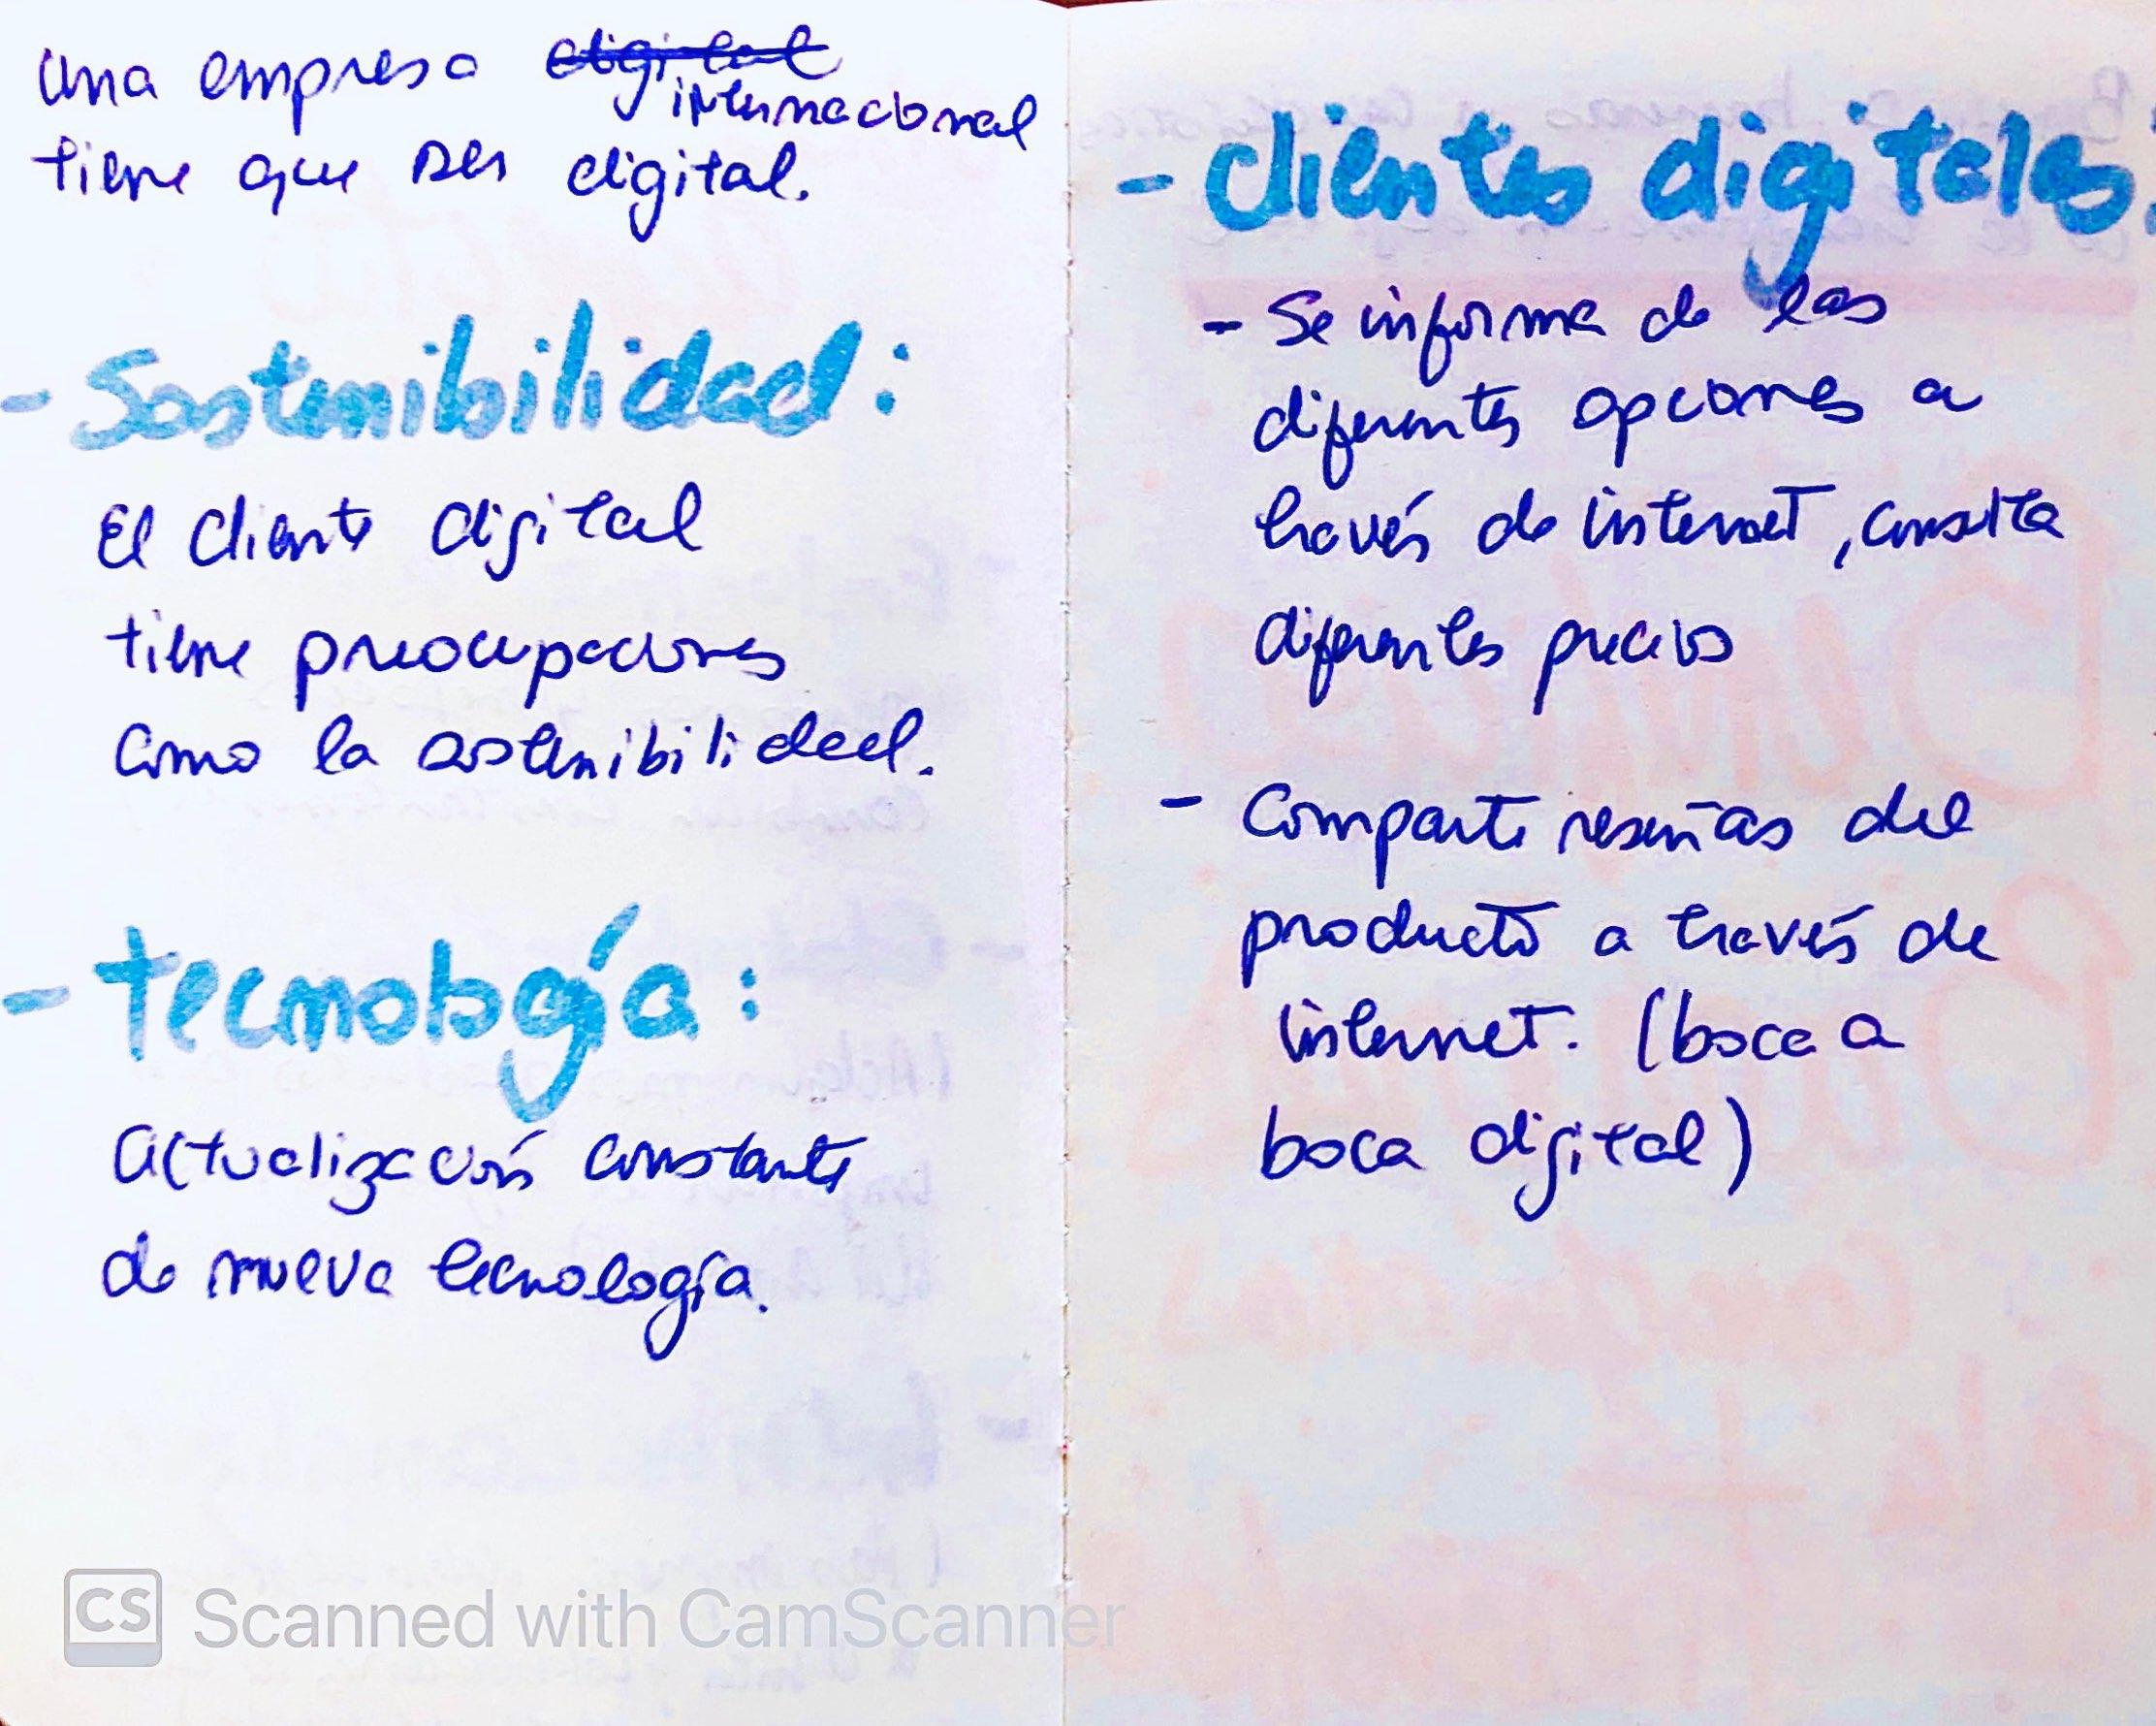 una empresa digital
internacional
tiene que ser digital.
- Sostenibilidad:
El cliente digital
tiene preocupaciones
como la sostenibilidad.
- tecnología:
actualización constante
de nueva tecnología.
- clientes digitales:
- Se informa de las
diferentes opciones a
través de internet, consulta
diferentes precios
- Comparte reseñas del
producto a través de
internet. (boca a
boca digital)
CS Scanned with CamScanner